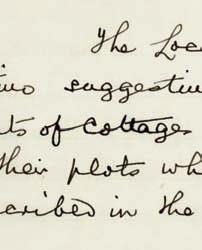 The Loc
two suggestin
ts of cottages
their plots wh
cribed in the